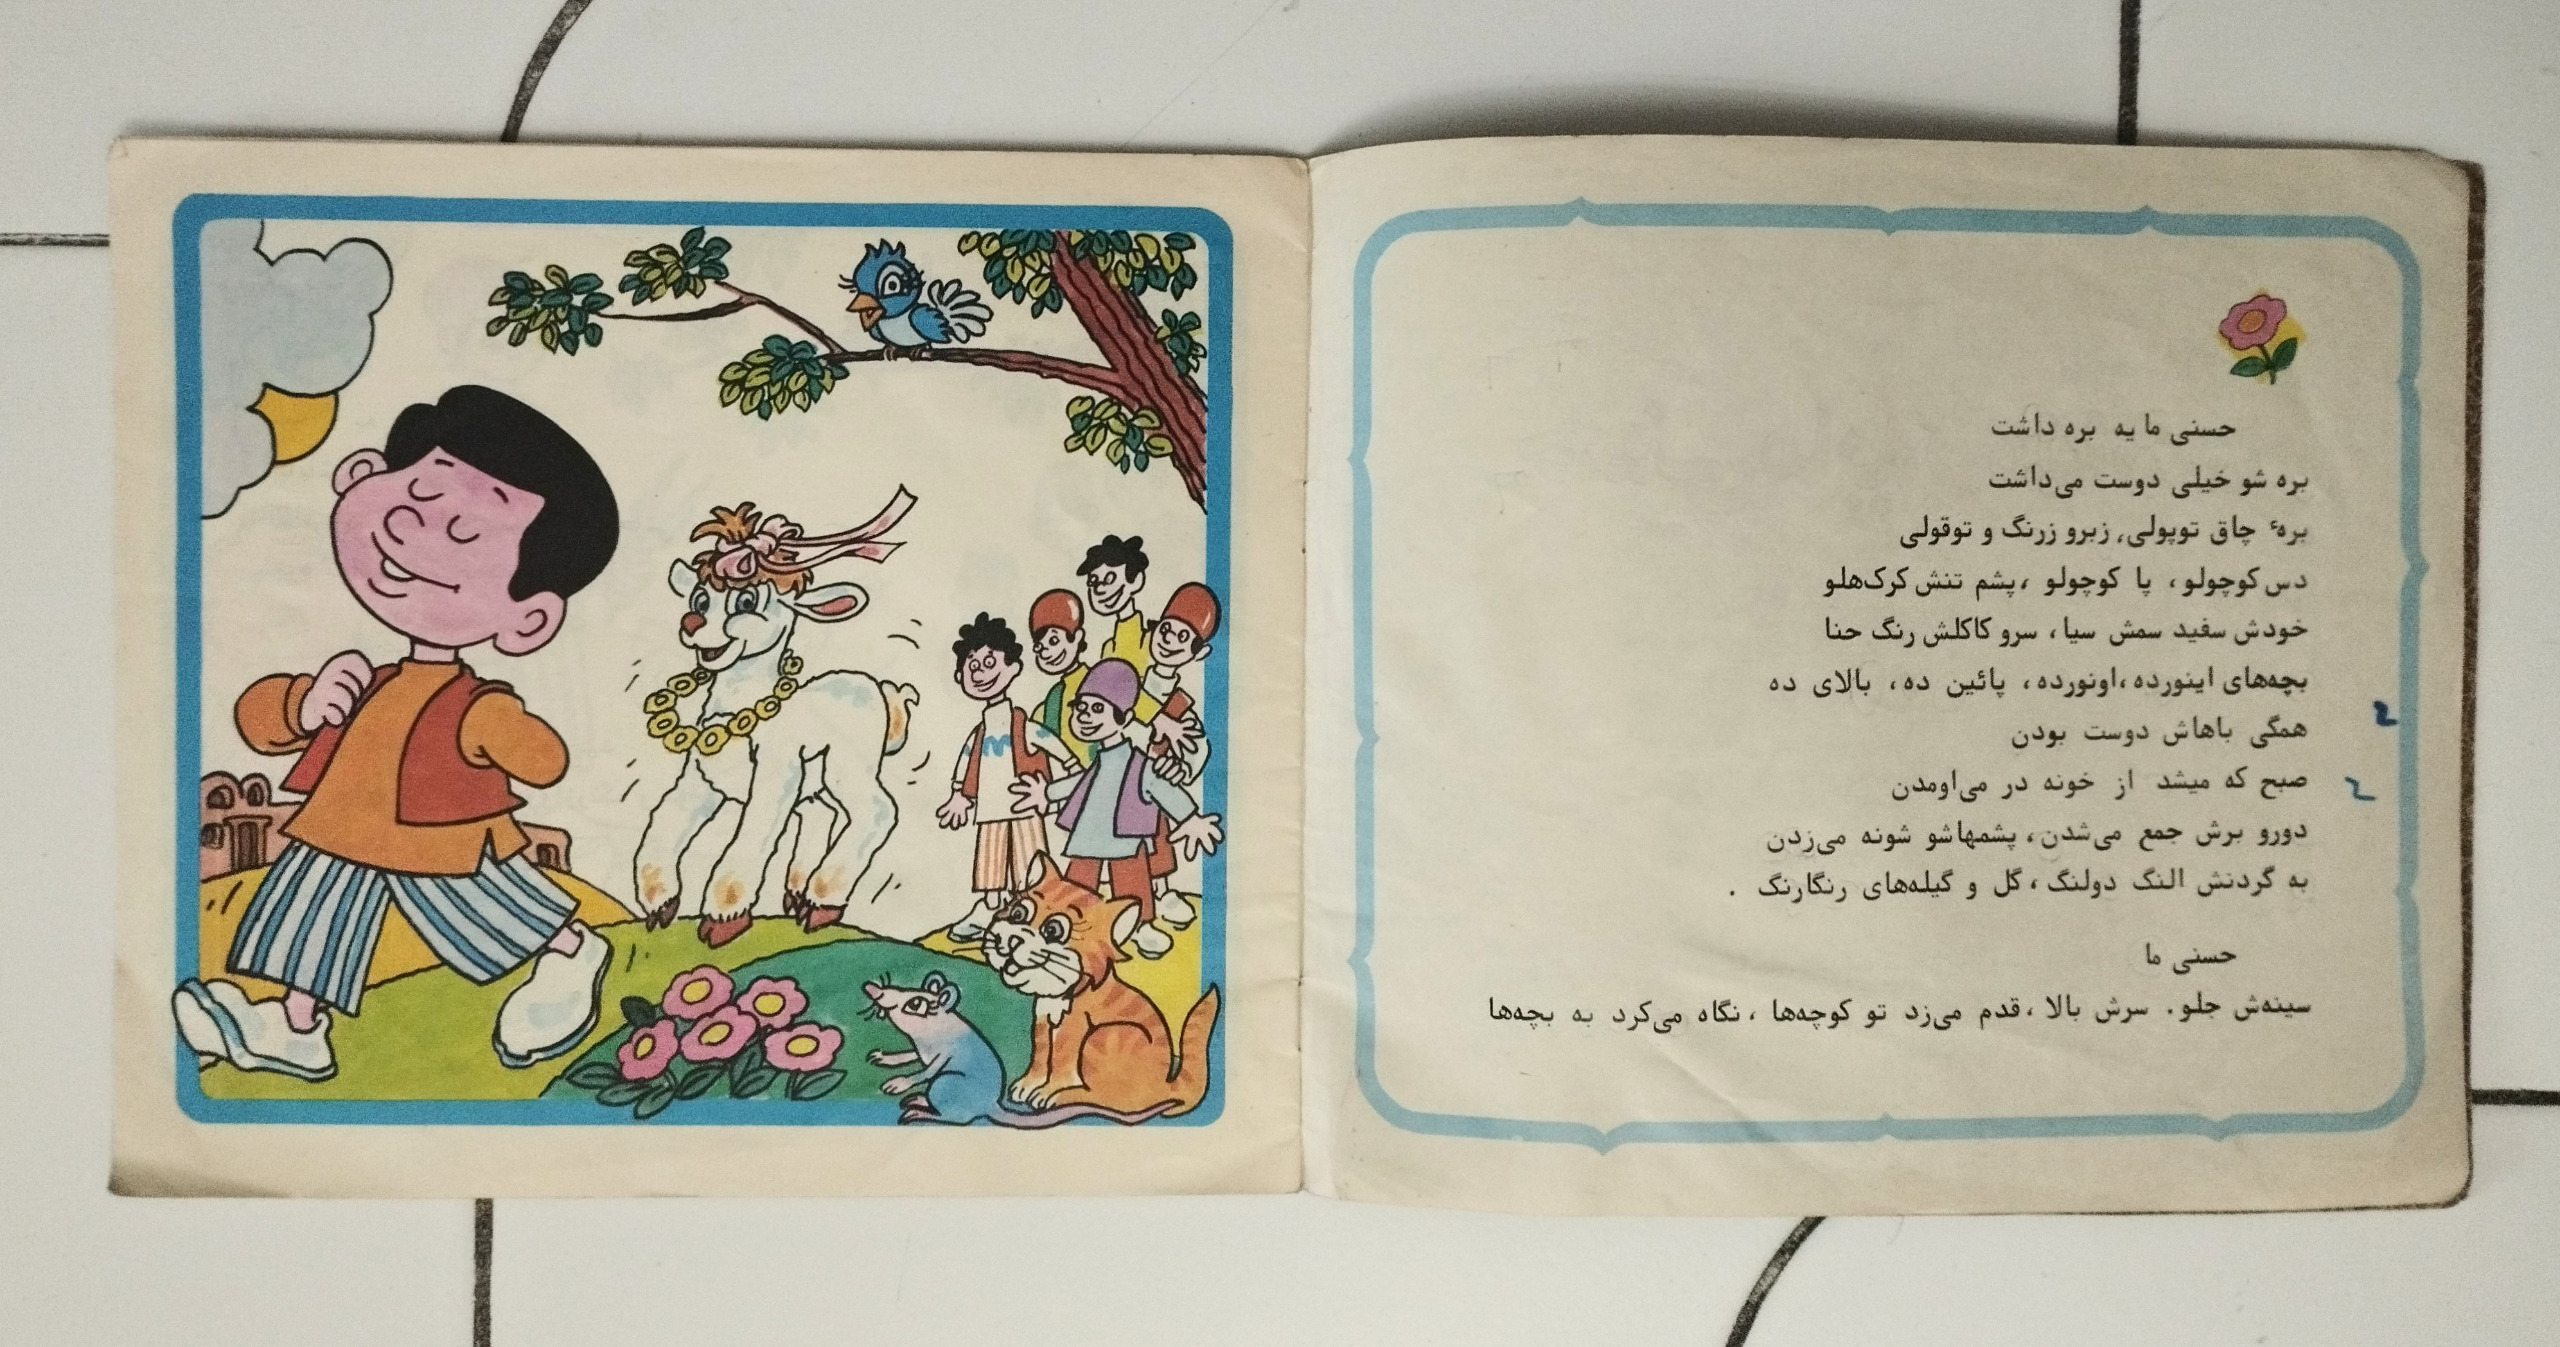 حسنی ما یه بره داشت
بره شو خیلی دوست می‌داشت
برهٔ چاق توپولی، زبرو زرنگ و توقولی
دس کوچولو، پا کوچولو، پشم تنش کرک‌هلو
خودش سفید سمش سیا، سرو کاکلش رنگ حنا
بچه‌های اینورده، اونورده، پائین ده، بالای ده
همگی باهاش دوست بودن
صبح که میشد از خونه در می‌اومدن
دورو برش جمع می‌شدن، پشمهاشو شونه می‌زدن
به گردنش النگ دولنگ، گل و گیله‌های رنگارنگ .
حسنی ما
سینه‌ش جلو. سرش بالا، قدم می‌زد تو کوچه‌ها، نگاه می‌کرد به بچه‌ها